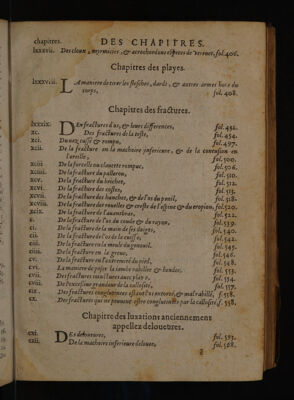 chapitres. DES CHAPITRES.
lxxxvii. Des cloux, myrmecies, & acrochordons especes de verrues, fol. 406.
Chapitres des playes.
lxxxviii. La maniere de tirer les flesches, dards, & autres armes hors du
corps, fol. 408.
Chapitres des fractures.
lxxxix. Des fractures d'os, & leurs differences, fol. 451.
xc. Des fractures de la teste, fol. 454.
xci. Du nez cassé & rompu, fol. 497.
xcii. De la fracture en la machoire inferieure, & de la contusion en
l'oreille, fol. 500.
xciii De la furcelle ou clauette rompue, fol. 506.
xciiii De la fracture du palleron, fol. 510.
xcv. De la fracture du brichet, fol. 511.
xcvi. De la fracture des costes, fol. 513.
xcvii. De la fracture des hanches, & de l'os du penil, fol. 518.
xcviii. De la fracture des rouelles & creste de l'espine & du cropion, fol. 520.
xcix. De la fracture de l'auantbras, fol. 522.
c. De la fracture de l'os du coude & du rayon, fol. 539.
ci. De la fracture de la main & de ses doigts, fol. 540.
cii. De la fracture de l'os de la cuisse, fol. 542.
ciii. De la fracture en la meule du genouil. fol. 545.
De la fracture en la greue, fol. 546.
cv. De la fracture en l'extremité du pied, fol. 548.
cvi. La maniere de poser la iambe rabillee & bandee, fol. 551.
cvii. Des fractures iointes aux playes, fol. 554.
cviii De l'excessiue grandeur de la callosité, fol. 557.
cix Des fractures conglutinees estants tortues, & mal rabillé, f. 558.
cx. Des fractures qui ne peuuent estre conglutinees par la callosité, f. 558,
Chapitre des luxations anciennement
appellez deloueures.
cxi. Des deloueures, fol. 563.
cxii. De la machoire inferieure deloüee, fol. 568.